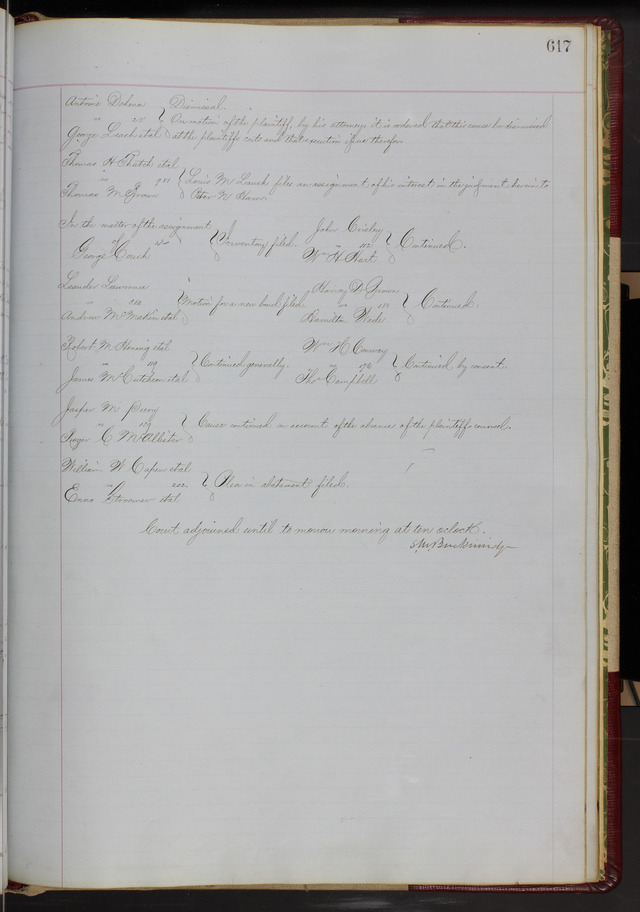 617
Antoine Dohma } Dismissal.
vs } On motion of the plaintiff, by his attorney, it is ordered that this cause be dismissed
George Leach et al } at the plaintiffs costs and that execution issue therefor
Thomas H Thatch et al
vs } Louis M. files an assignment of his interest in the judgment herein to
Thomas M Brown } Peter N
In the matter of the assignment
of } Inventory filed.
George Couch
John Crisley
vs 112 } Continued.
Wm H Hart
Leander Lawrence
vs } Motion for a new bond filed.
Andrew McMakin et al
Harvey D. Brown
vs } Continued.
Hamilton Wade
Robert M. Hening et al
vs 119 } Continued generally.
James McCutcheon et al
Wm H Conway
vs 176 } Continued by consent.
Thos Campbell
Jasper M Peery
vs 179 } Cause continued on account of the absence of the plaintiffs counsel.
Roger C McAllister
William W Capen et al
vs 202 } Plea in abatement filed.
Enno et al
Court adjourned until to morrow morning at ten oclock.
S M Breckinridge